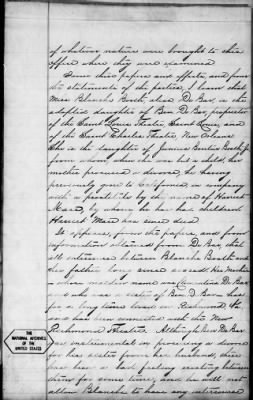 of whatever nature were brought to this
office where they were examined
From their papers and effects, and from
the statements of the parties, I learn that
Miss Blanche Booth, alias De Bar, is the
adopted daughter of Ben. De Bar, proprietor
of the Saint Louis Theatre, Saint Louis, and
of the Saint Charles Theatre, New Orleans
She is the daughter of Junius Brutus Booth, Jr.
from whom, when she was but a child, her
mother procured a divorce, he having
previously gone to California, in company
with a prostitute by the name of Harriet
Mace, by whom he has had children
Harriet Mace has since died
It appears, from the papers, and from
information obtained from De Bar, that
all intercourse between Blanche Booth and
her father long since ceased. Her mother
whose maiden name was Clementina De Bar
and who was a sister of Ben. D. Bar has
for a long time lived in Richmond Va.
and has been connected with the New
Richmond Theatre. Although Ben De Bar
was instrumental in procuring a divorce
for his sister from her husband, there
has been a bad feeling existing between
them for some time, and he will not
allow Blanche to have any intercourse
THE
NATIONAL ARCHIVES
OF THE
UNITED STATES